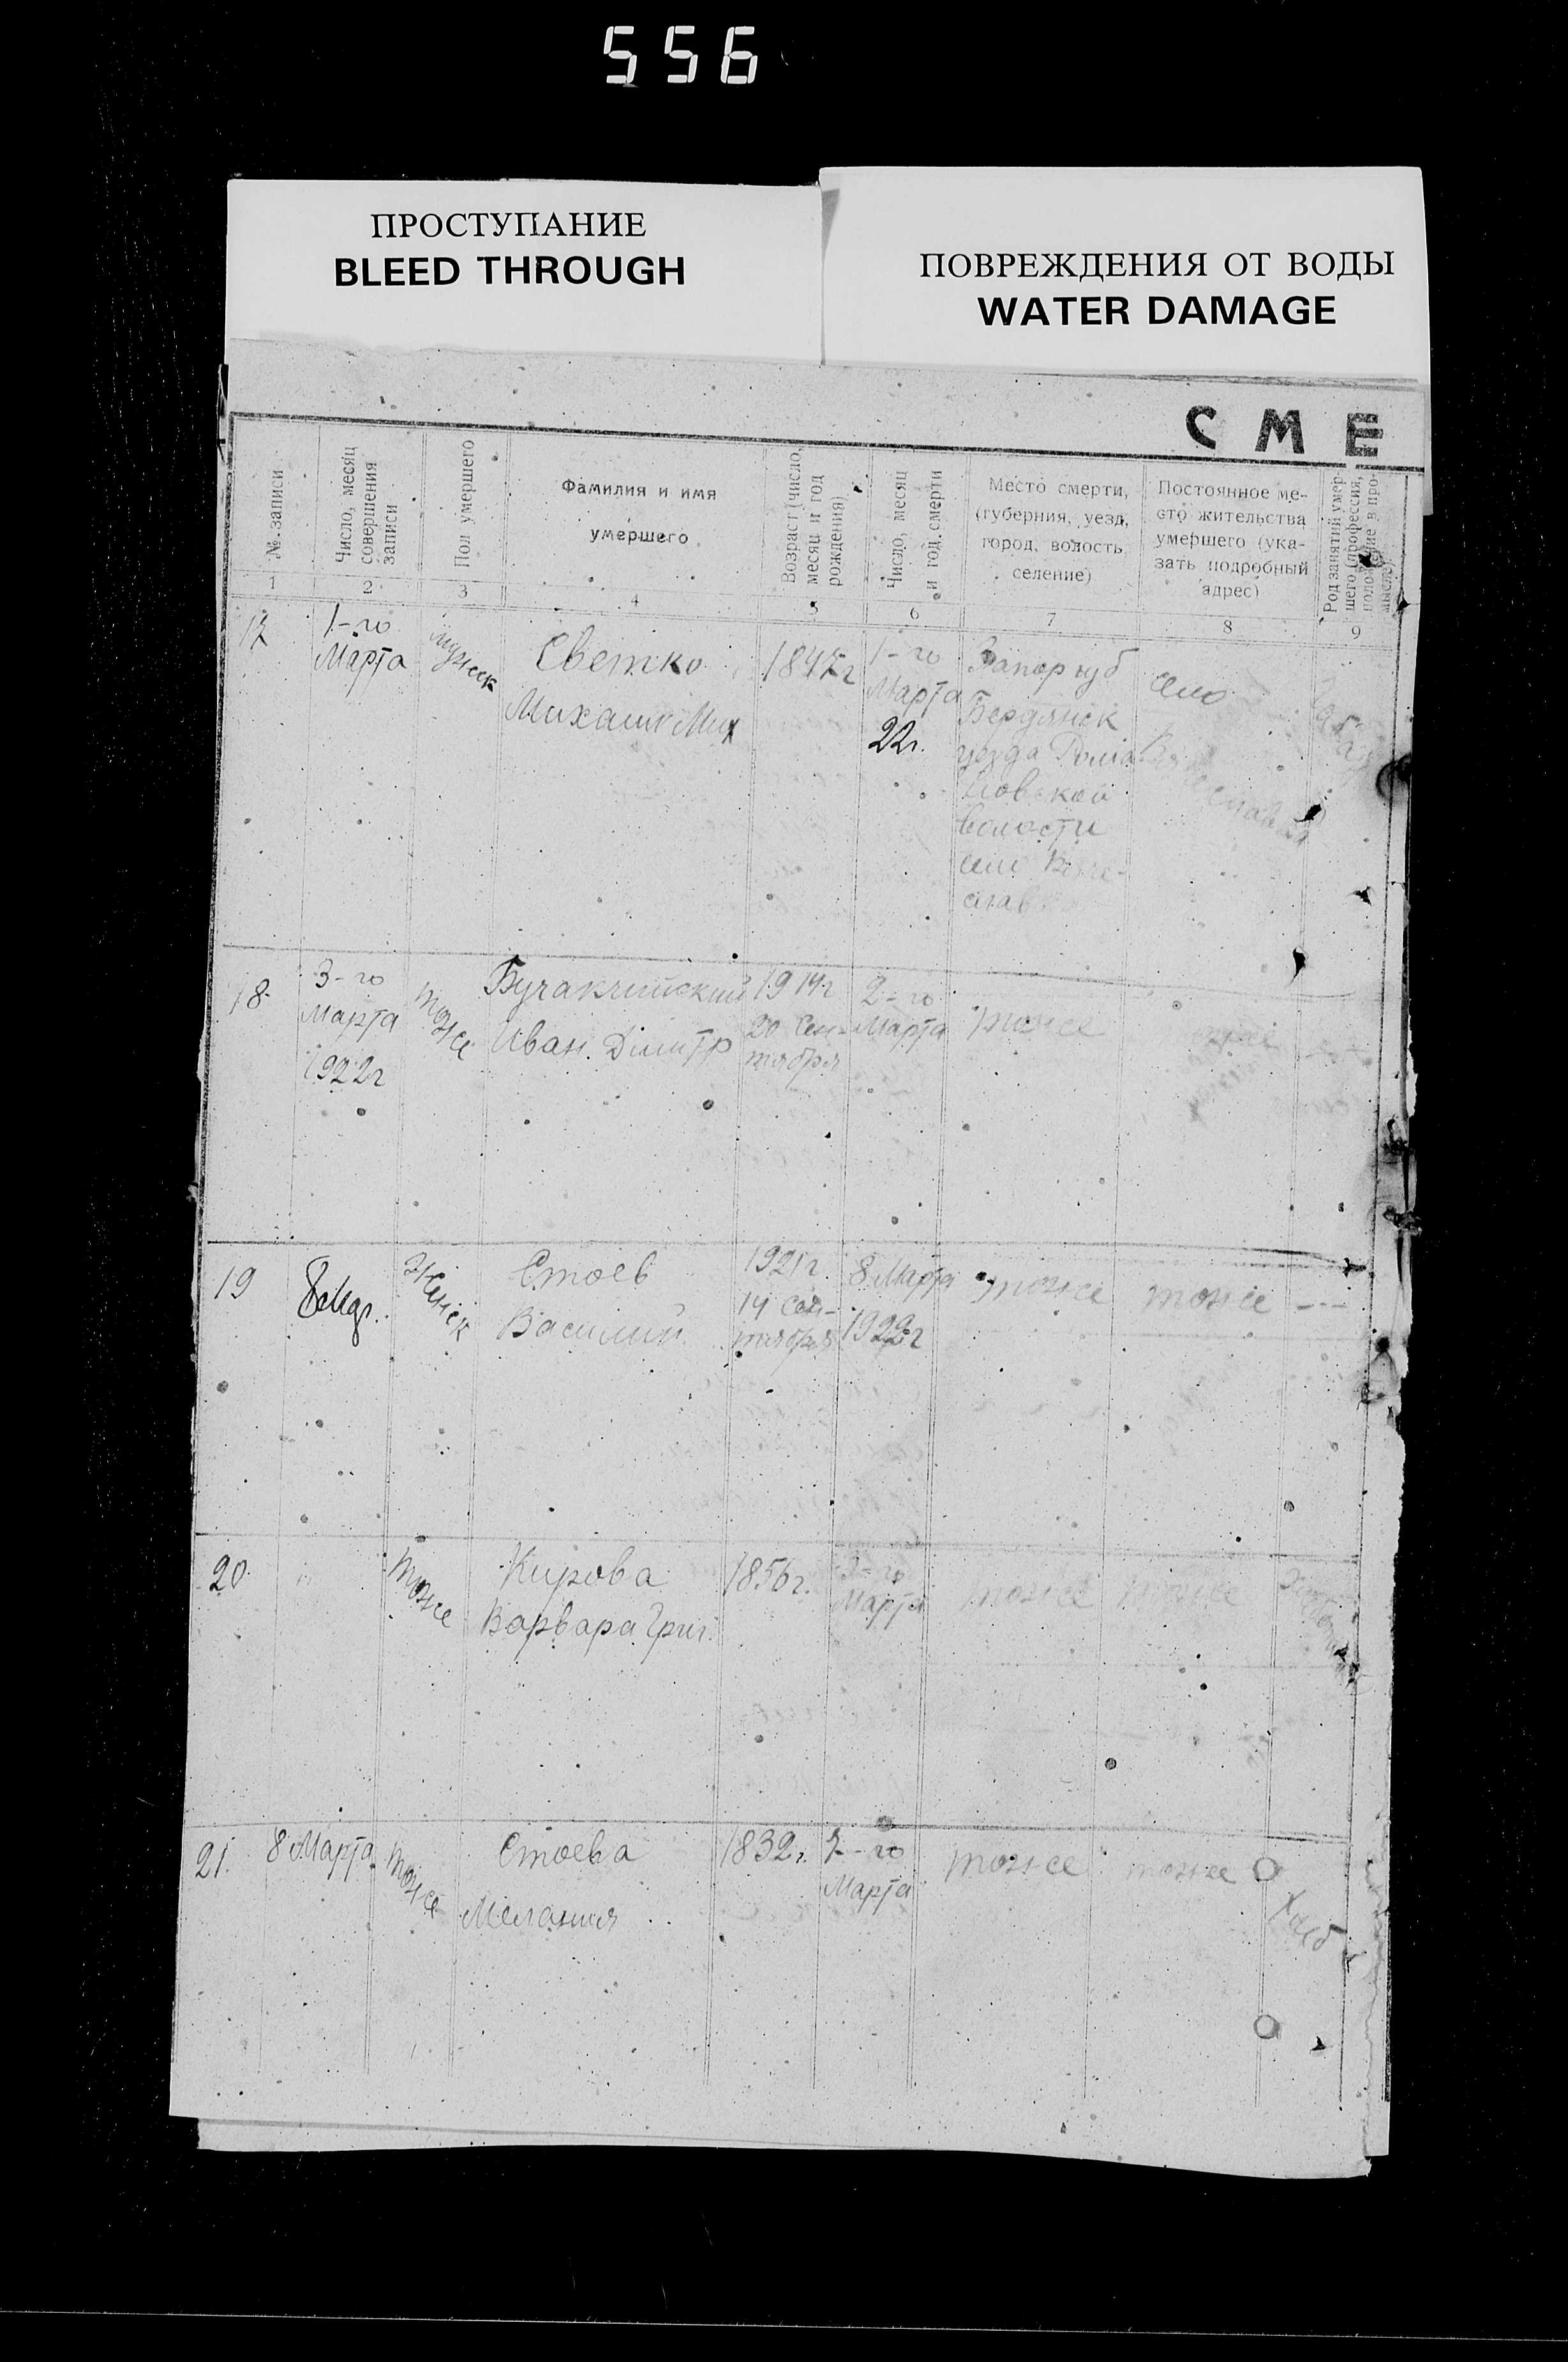 556
ПРОСТУПАНИЕ
BLEED THROUGH
ПОВРЕЖДЕНИЯ ОТ ВОДЫ
WATER DAMAGE
СМЕ
№ записи
Число, месяц
совершения
записи
Пол умершего
Фамилия и имя
умершего
Возраст (число,
месяц и год
рождения)
Число, месяц
и год смерти
Место смерти,
(губерния, уезд,
город, волость,
селение)
Постоянное ме-
сто жительства
умершего (ука-
зать подробный
адрес)
Род занятий умер-
шего (профессия,
положение в про-
мысле)
1 2 3 4 5 6 7 8 9
17
1-го
Марта
мужск
Светко
Михаил Мих
1847г
1-го
Марта
22г.
Запор губ
Бердянск
уезда
волости
село
село
18
3-го
Марта
1922г
тоже
Иван Дімитр
1914г
20 Сен-
тября
2-го
Марта
тоже
тоже
19
8 Мар.
Женск
Стоев
Василий
1921г
14 Сен-
тября
8 Марта
1922г
тоже
тоже
---
20
тоже
Кирова
Варвара Григ.
1856г.
Марта
тоже
тоже
21.
8 Марта
тоже
Стоева
Мелания
1832г.
7-го
Марта
тоже
тоже
Хлеб